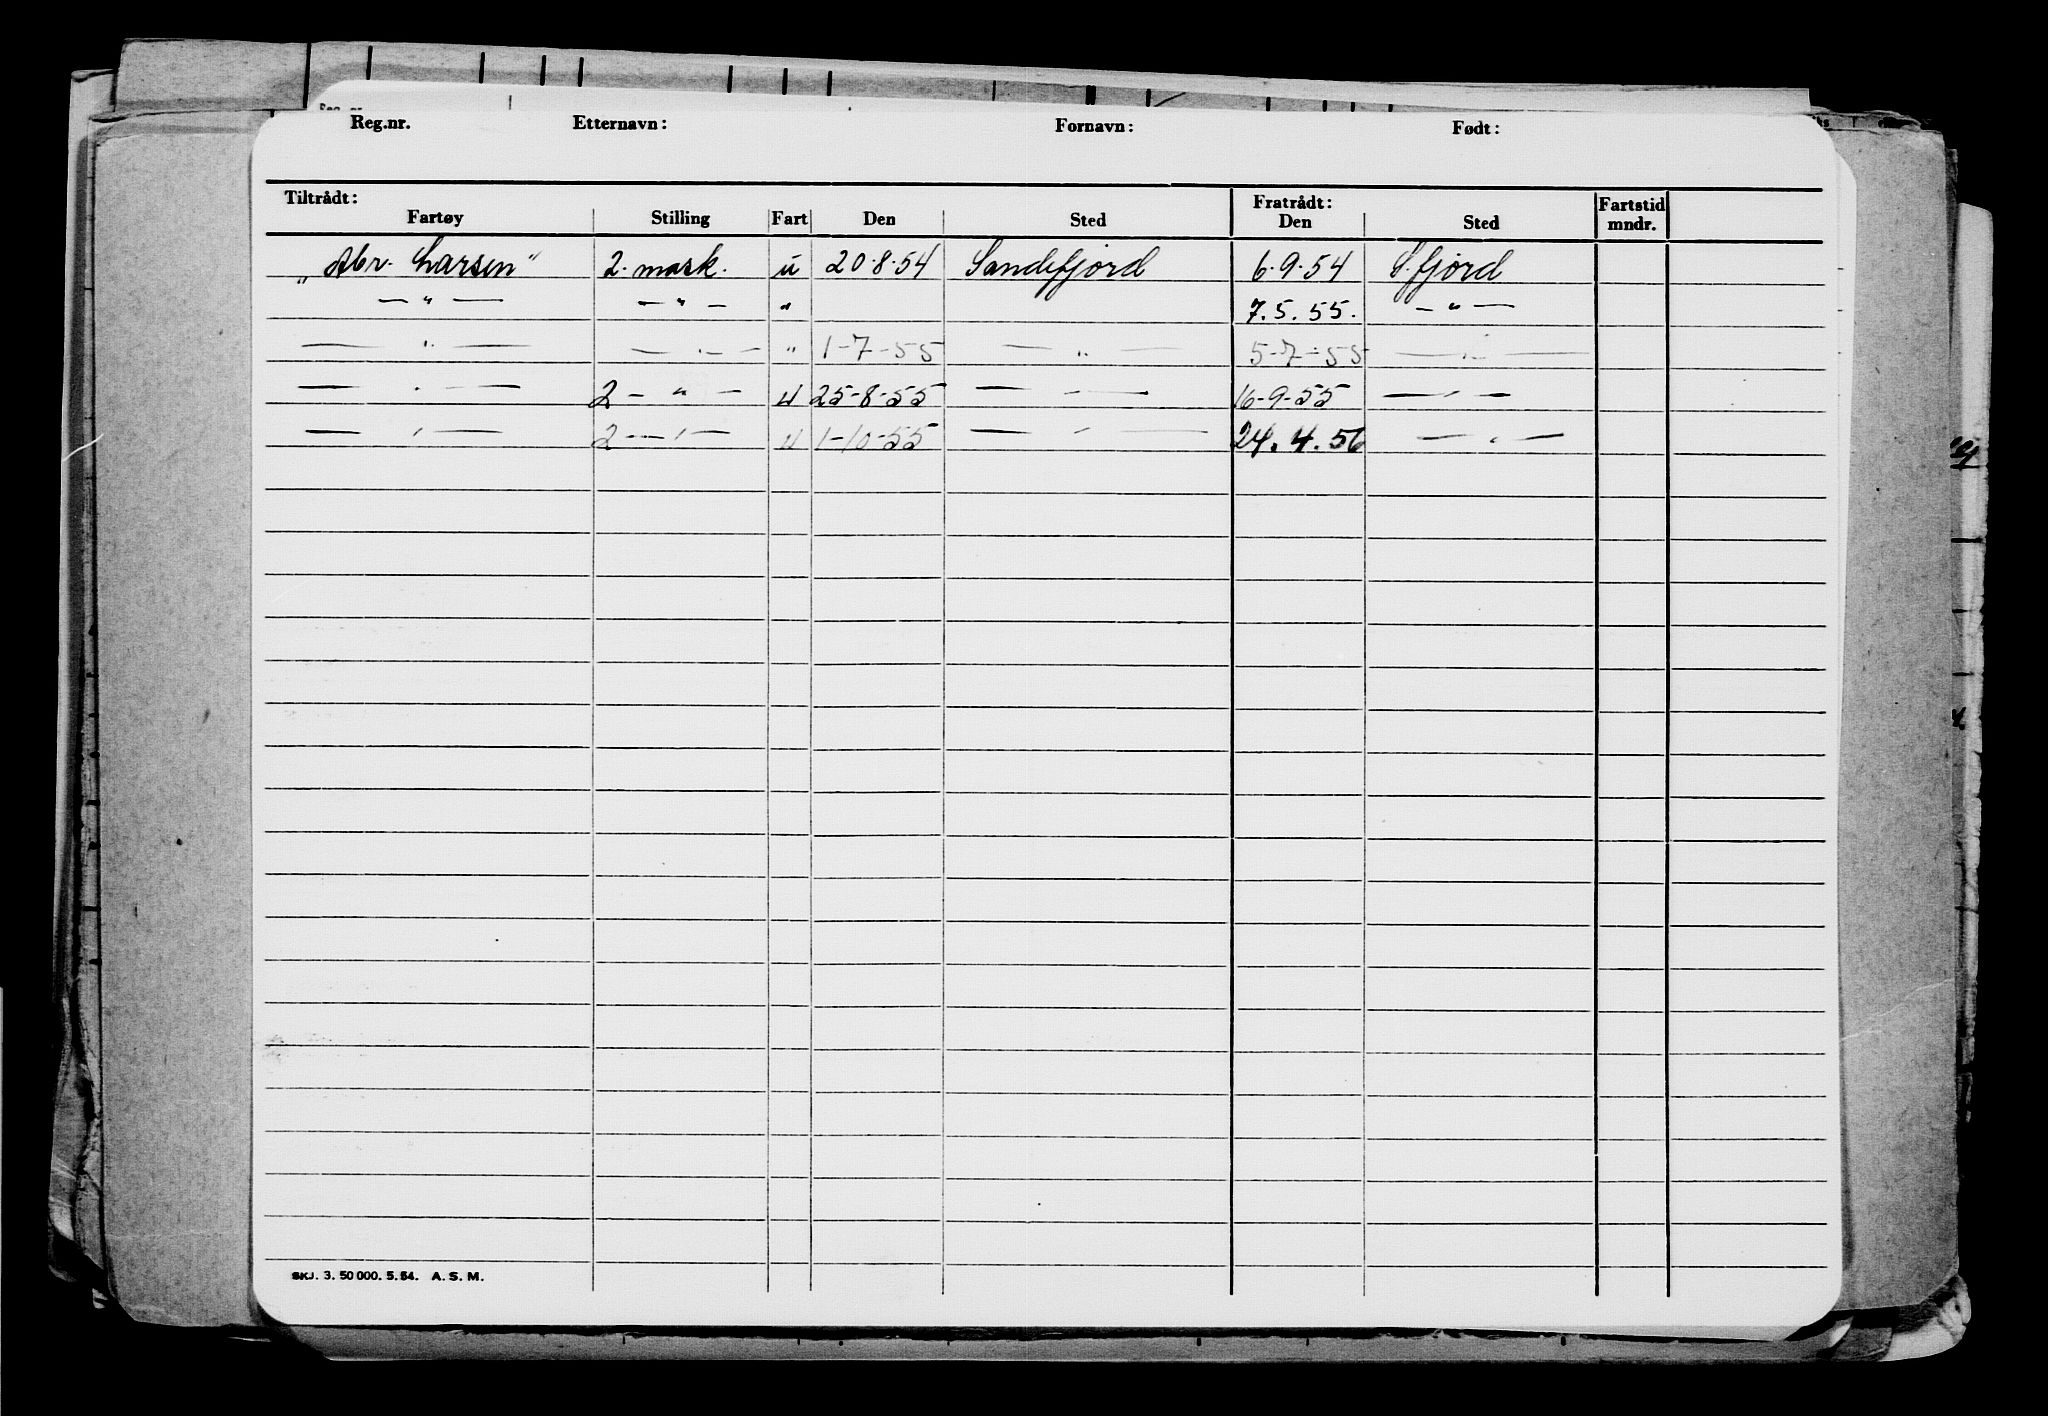 Reg.nr. Etternavn: Fornavn: Født:
Tiltrådt: Fratrådt: Fartstid
Fartøy Stilling Fart Den Sted Den Sted mndr.
„Abr. Larsen" 2. mask. u 20.8.54 Sandefjord 6.9.54 S.fjord
— " — — " — " 7.5.55. — " —
— " — — " — " 1-7-55 — " — 5-7-55 — " —
— " — 2 — " — u 25-8-55 — " — 16-9-55 — " —
— " — 2 — " — u 1-10-55 — " — 24.4.56 — " —
SKJ. 3. 50 000. 5. 54. A. S. M.